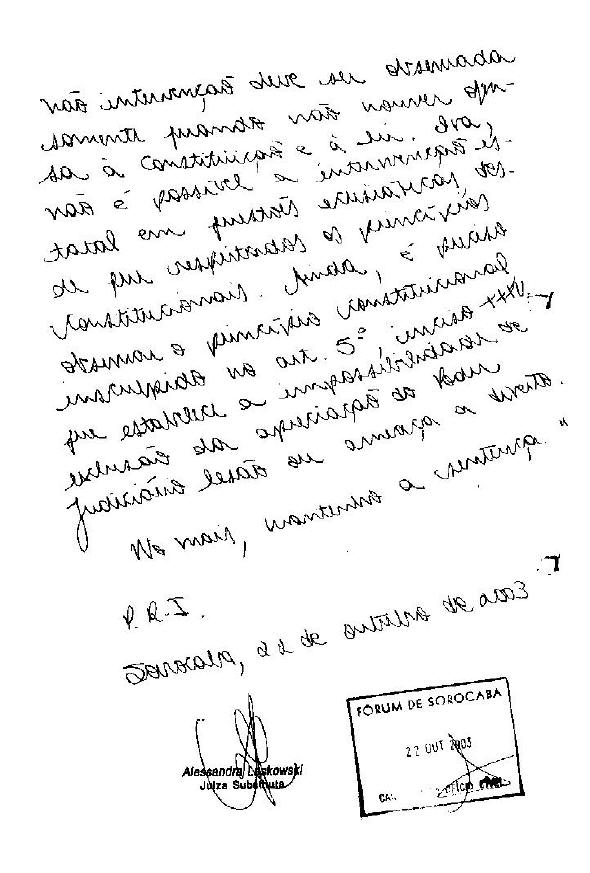 não intervenção deve ser observada
somente quando não houver ofen-
sa à Constituição e à lei. Ora,
não é possível a intervenção es-
tatal em questões eclesiásticas, des-
de que respeitados os princípios
Constitucionais. Ainda, é preciso
observar o princípio constitucional
insculpido no art. 5º, inciso XXXV,
que estabelece a impossibilidade de
exclusão da apreciação do Poder
Judiciário lesão ou ameaça a direito.
No mais, mantenho a sentença."
P.R.I.
Sorocaba, 22 de outubro de 2003
Alessandra Laskowski
Juíza Substituta
FÓRUM DE SOROCABA
22 OUT 2003
OFÍCIO CÍVEL